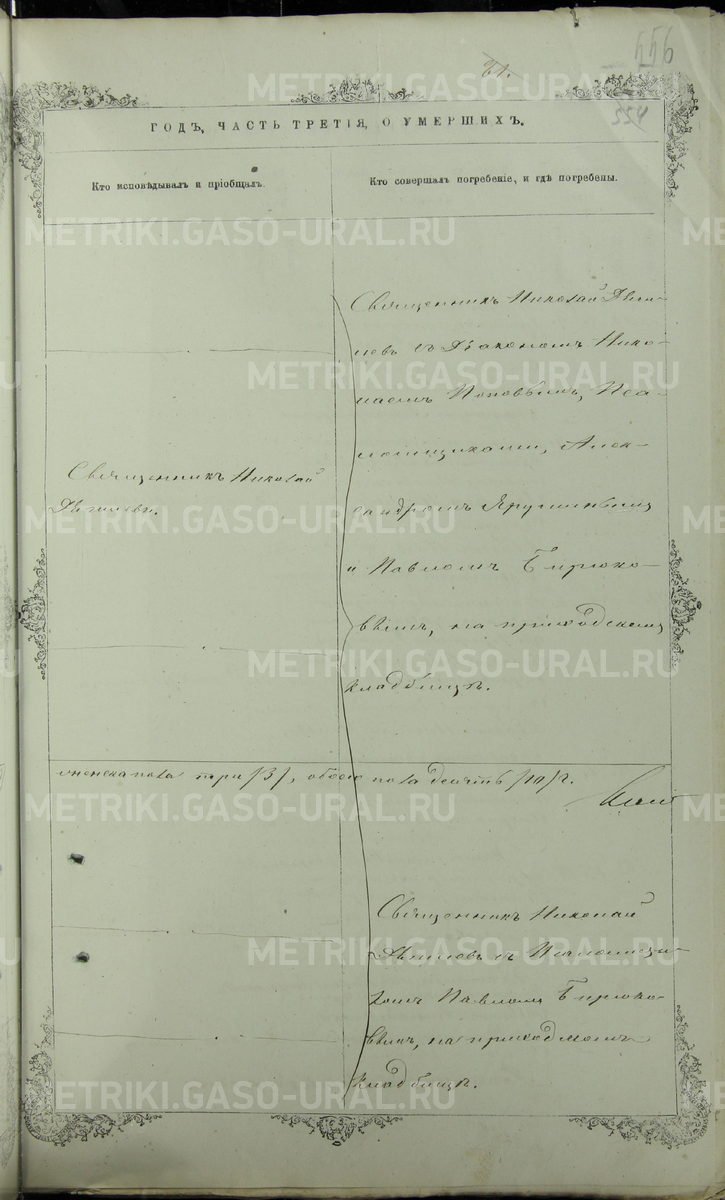 61.
556
ГОДЪ, ЧАСТЬ ТРЕТІЯ, О УМЕРШИХЪ.
Кто исповѣдывалъ и пріобщалъ.
Кто совершалъ погребеніе, и гдѣ погребены.
Священникъ Николай
Священникъ Николай
съ Діакономъ Нико-
лаемъ Поповымъ, Пса-
ломщиками, Алек-
сандромъ
и Павломъ Бирюко-
вымъ, на приходскомъ
кладбищѣ.
женска пола три /3/, обоего пола десять /10/.
Священникъ Николай
съ Псаломщи-
комъ Павломъ Бирюко-
вымъ, на приходскомъ
кладбищѣ.
METRIKI.GASO-URAL.RU